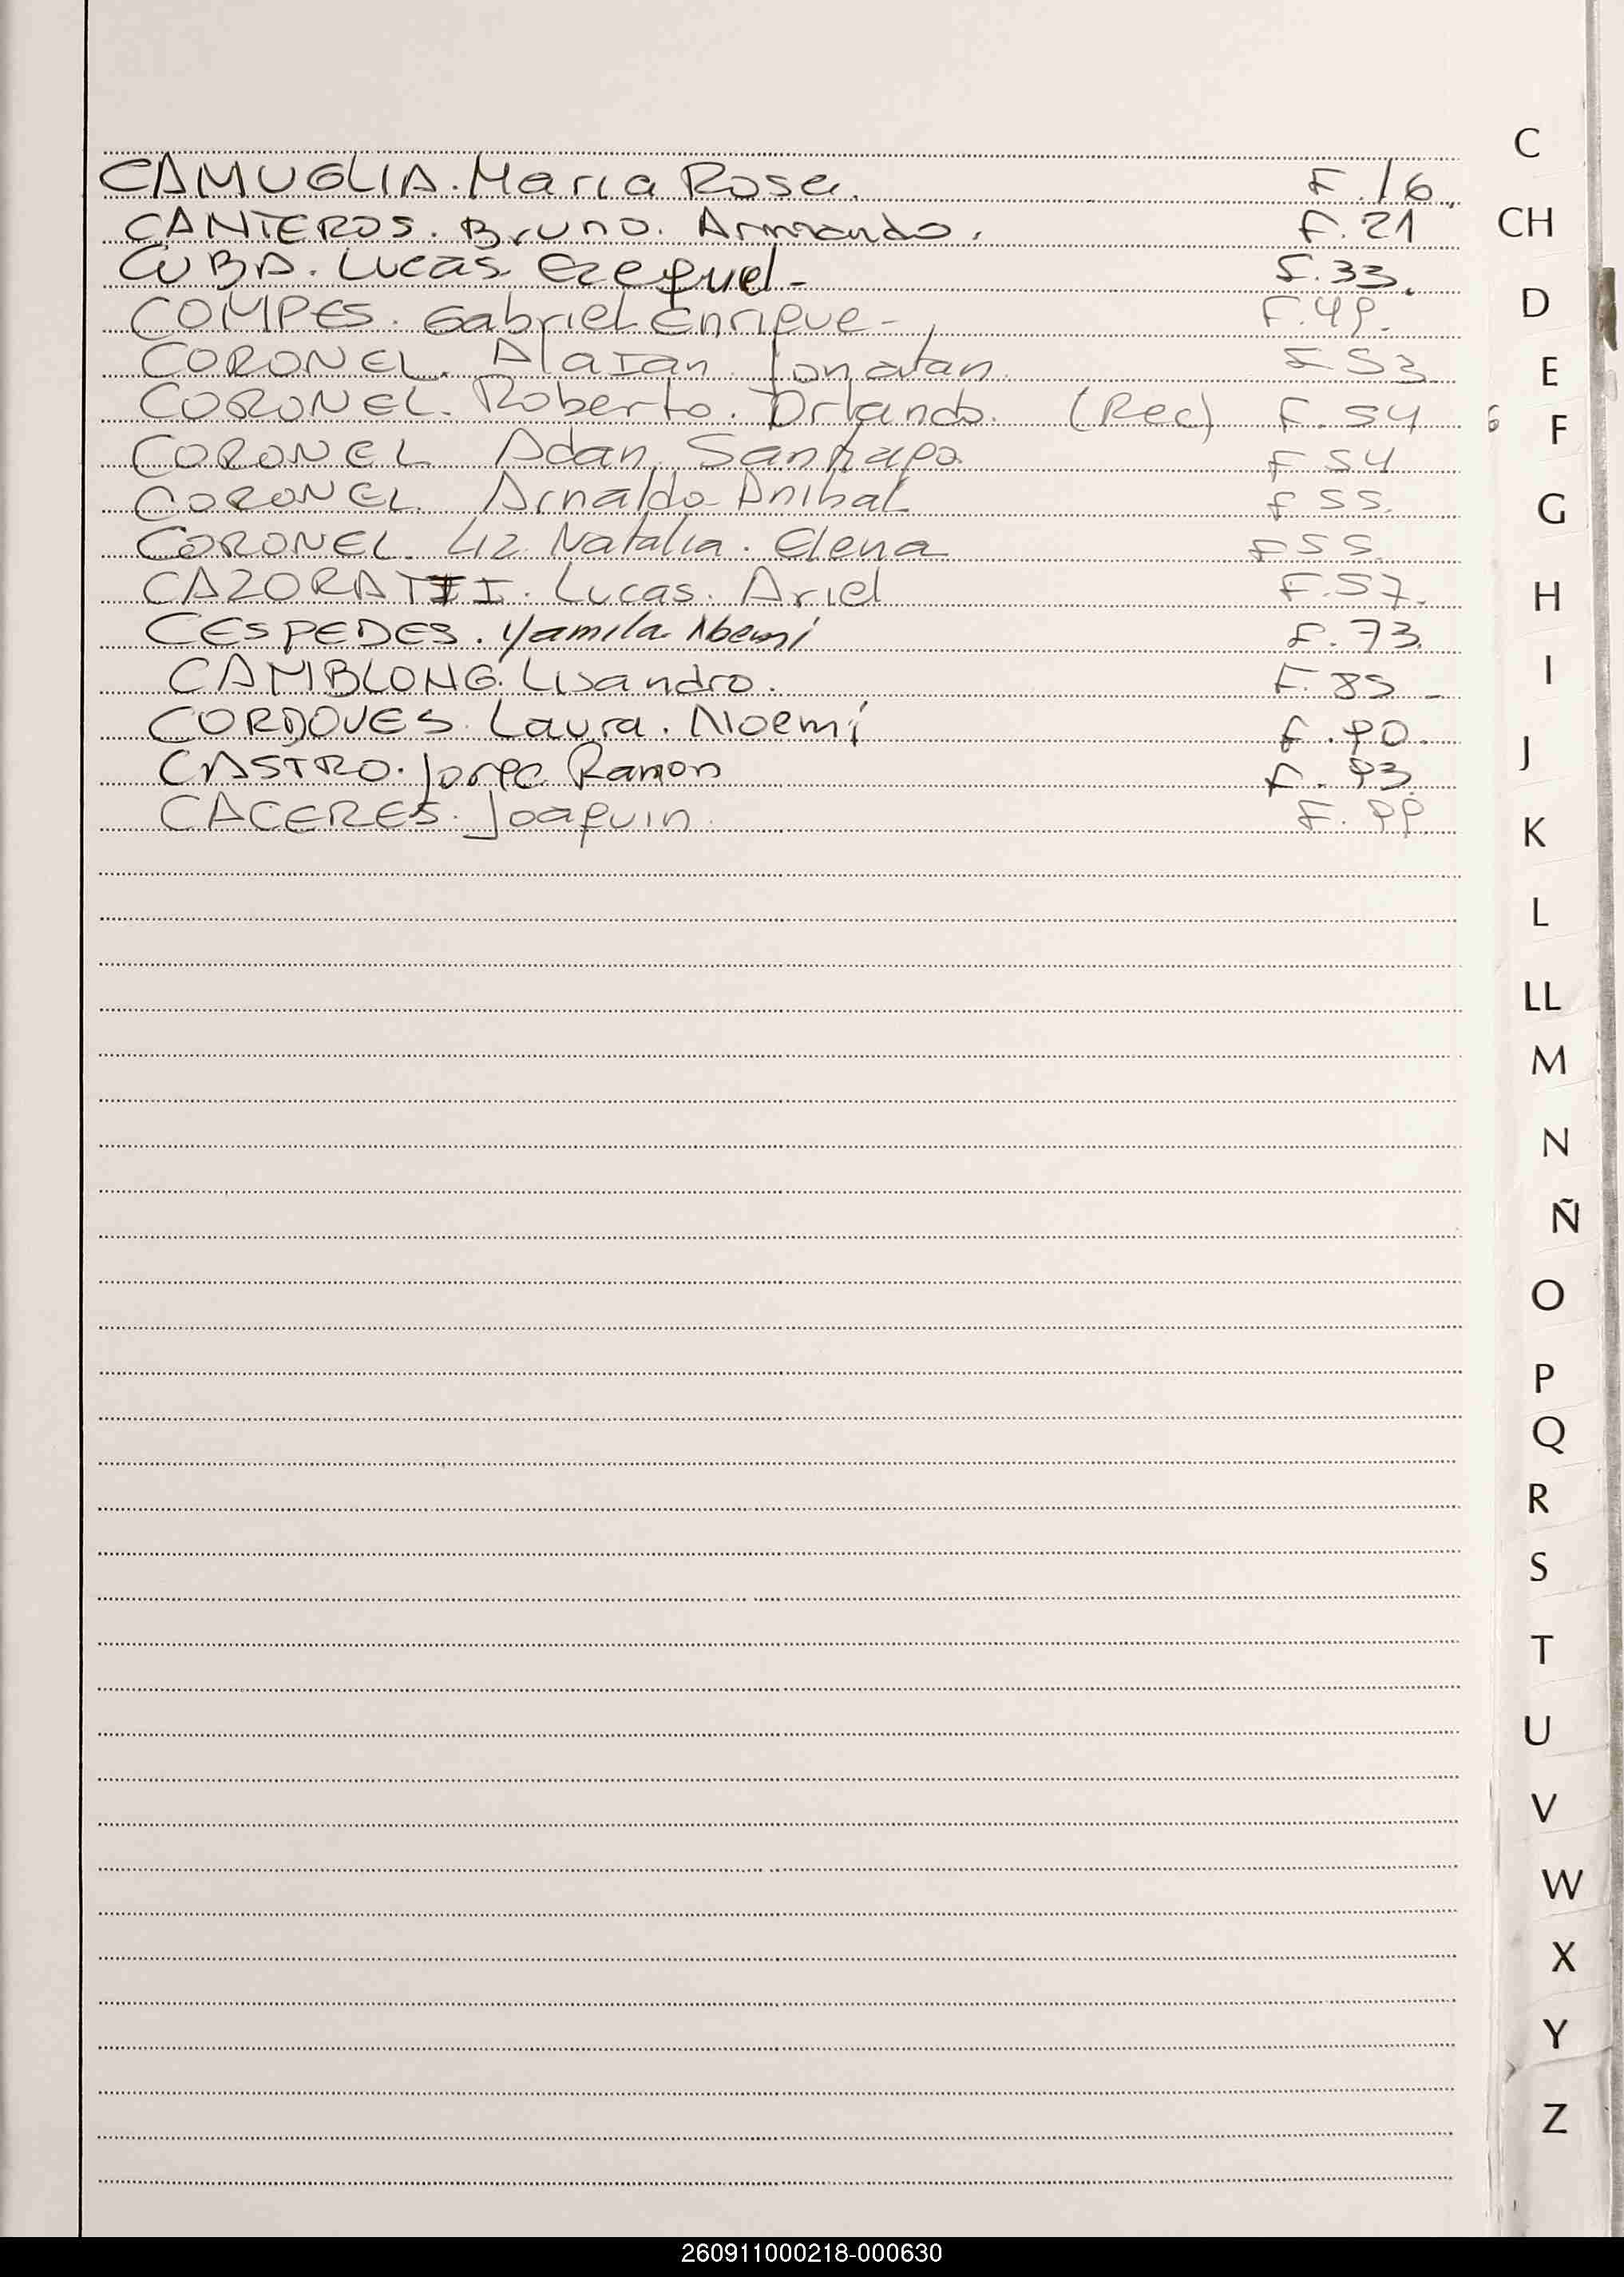 C
CAMUGLIA. Maria Rosa. F. 16.
CANTEROS. Bruno. Armando. F. 21
CH
CUBA. Lucas Ezequiel- F. 33.
D
COMPES. Gabriel Enrique- F. 49.
CORONEL. Jonatan. F 53
E
CORONEL. Roberto. Orlando. (Rec) F. 54
6
F
CORONEL Adan Santiago. F 54
CORONEL. Arnaldo Anibal F 55.
G
CORONEL. Liz Natalia. Elena F 55
CAZORATTI. Lucas. Ariel F. 57.
H
CESPEDES. Yamila Noemi F. 73.
CAMBLONG. Lisandro. F. 85 -
I
CORDOVES. Laura. Noemí F. 90.
J
CASTRO. Jorge Ramon F. 93.
CACERES. Joaquin. F. 99.
K
L
LL
M
N
Ñ
O
P
Q
R
S
T
U
V
W
X
Y
Z
260911000218-000630